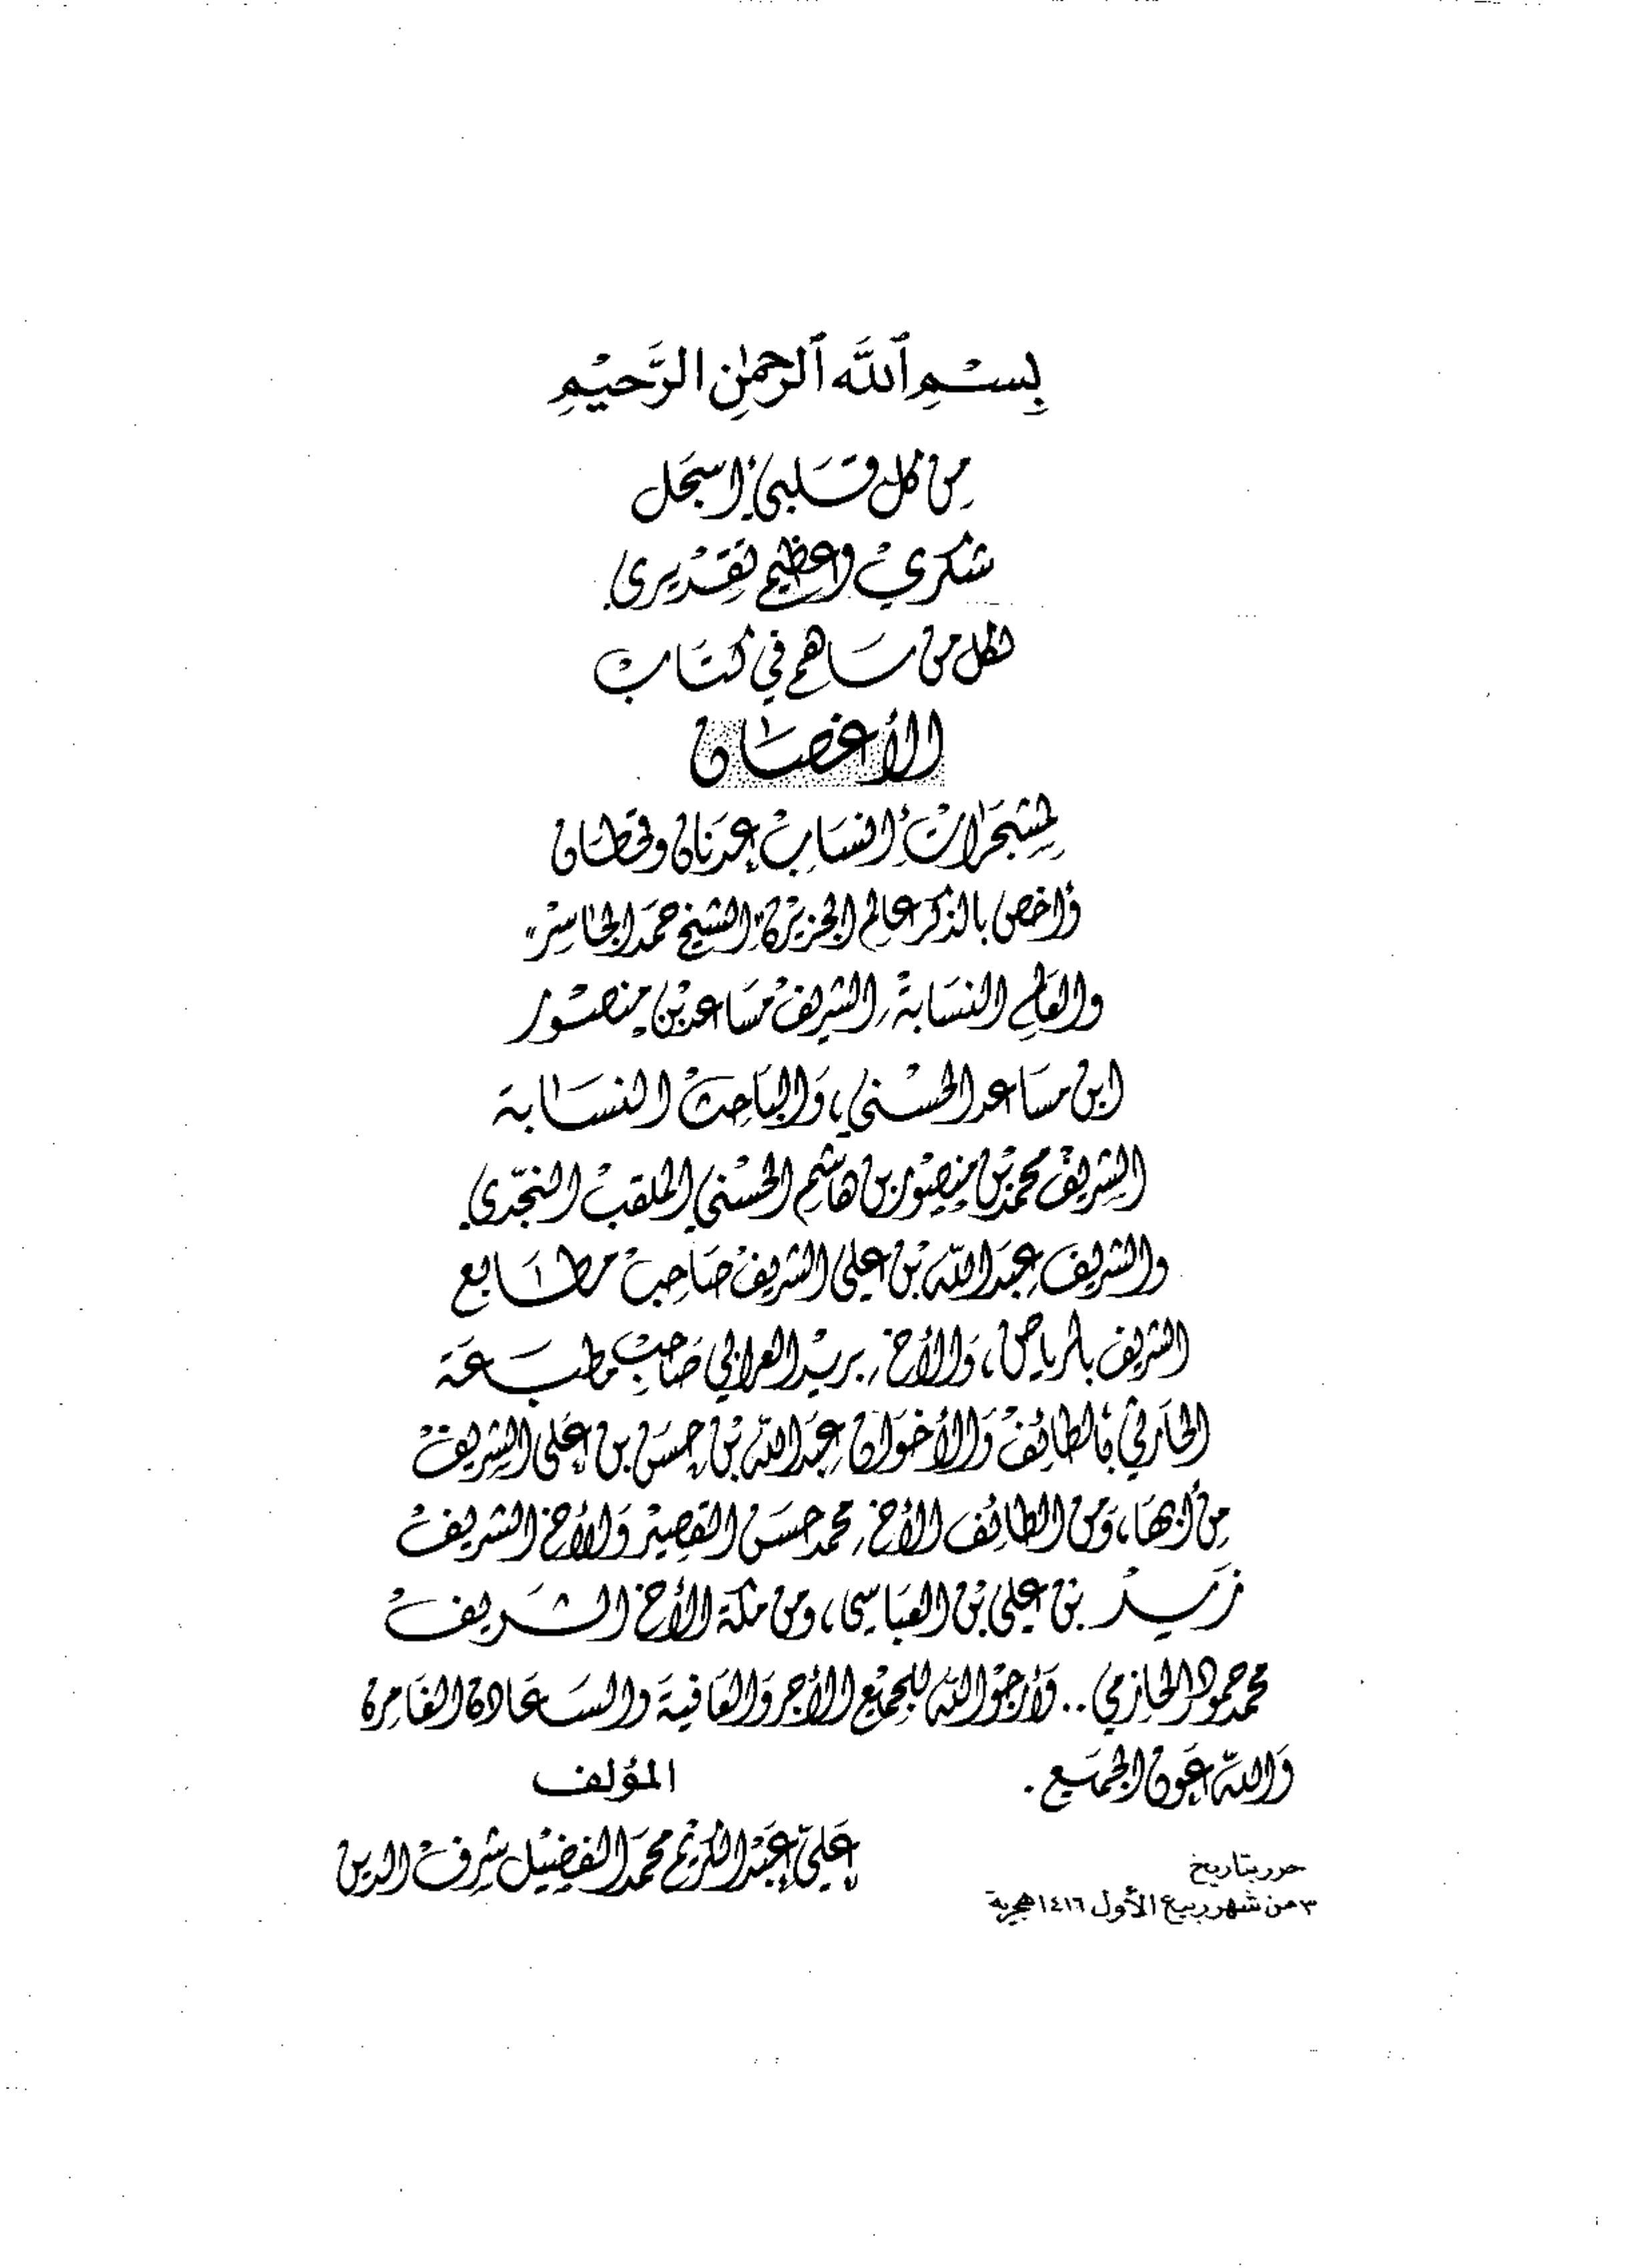 بسم الله الرحمن الرحيم
من كل قلبي أسجل
شكري وعظيم تقديري
لكل من ساهم في كتاب
الأغصان
لمشجرات أنساب عدنان وقحطان
وأخص بالذكر عالم الجزيرة الشيخ حمد الجاسر،،
والعالم النسابة الشريف مساعد بن منصور
ابن مساعد الحسني، والباحث النسابة
الشريف محمد بن منصور بن هاشم الحسني الملقب النجدي
والشريف عبد الله بن علي الشريف صاحب مطابع
الشريف بالرياض، والأخ بريد العرابي صاحب مطبعة
الحارثي بالطائف والأخوان عبد الله بن حسن بن علي الشريف
من أبها، ومن الطائف الأخ محمد حسن القصير والأخ الشريف
زيد بن علي بن العباسي، ومن مكة الأخ الشريف
محمد حمود الحازمي .. وأرجو الله للجميع الأجر والعافية والسعادة الغامرة
والله عون الجميع .
المؤلف
علي عبد الكريم محمد الفضيل شرف الدين
حرر بتاريخ
٣ من شهر ربيع الأول ١٤١٦ هجرية